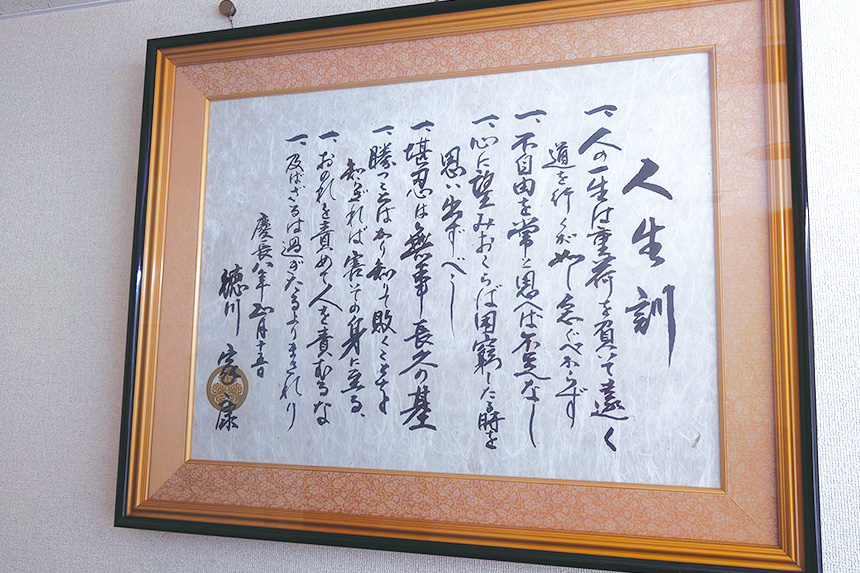 人生訓
一、人の一生は重荷を負いて遠く
道を行くが如し急ぐべからず
一、不自由を常と思へば不足なし
一、心に望みおこらば困窮した時を
思い出すべし
一、堪忍は無事長久の基
一、勝つことばかり知りて敗くることを
知らざれば害その身に至る、
一、おのれを責めて人を責むるな
一、及ばざるは過ぎたるよりまされり
慶長八年正月十五日
徳川家康